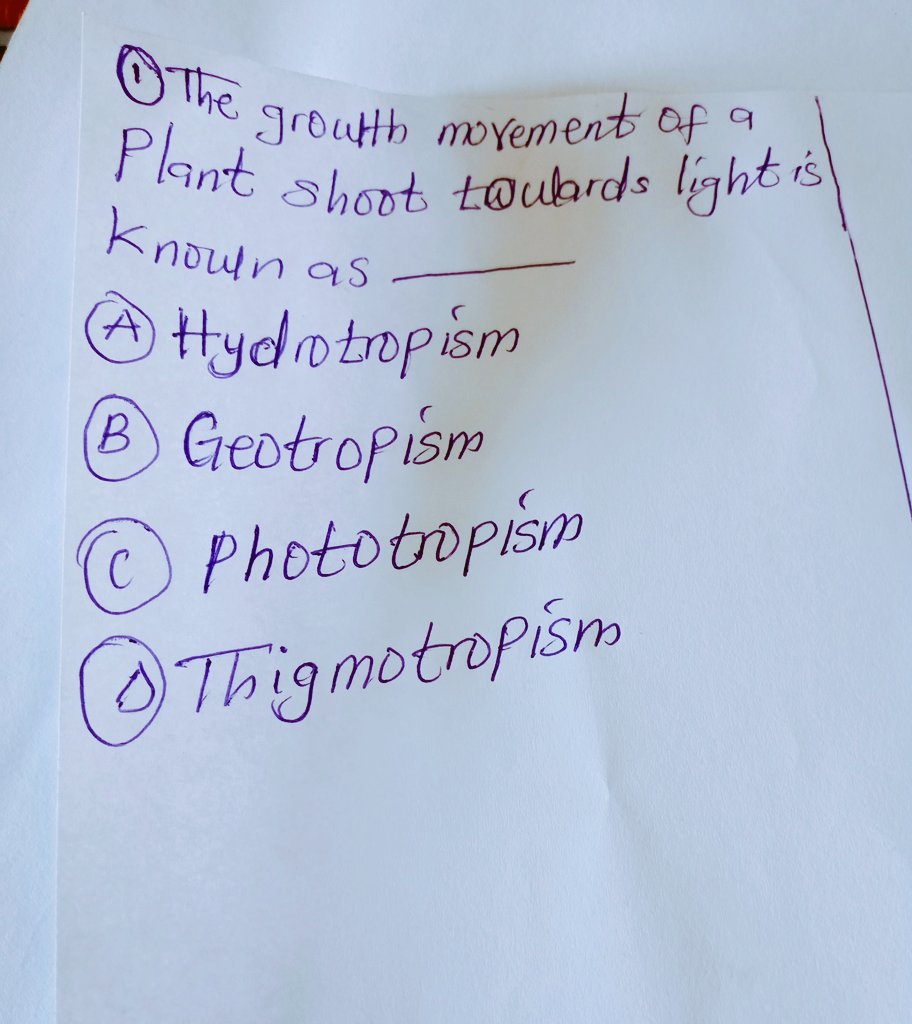 ① The growth movement of a
Plant shoot towards light is
Known as ______
Ⓐ Hydrotropism
Ⓑ Geotropism
Ⓒ Phototropism
Ⓓ Thigmotropism